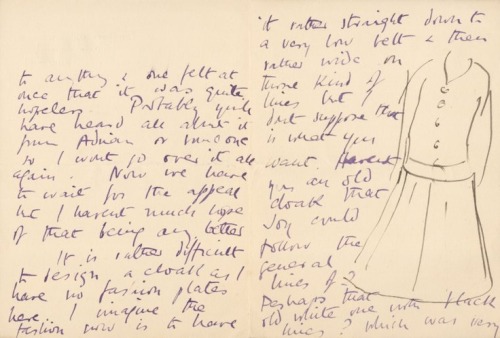 to anything & one felt at
once that it was quite
hopeless. Probably you'll
have heard all about it
from Adrian or someone
so I wont go over it all
again. Now we have
to wait for the appeal
but I havent much hope
of that being any better
It is rather difficult
to design a cloak as I
have no fashion plates
here. I imagine the
fashion now is to have
it rather straight down to
a very low belt & then
rather wide on
those kind of
lines but I
dont suppose that
is what you
want. Havent
you an old
cloak that
Joy could
follow the
general
lines of?
Perhaps that
old white one with black
lines? which was very